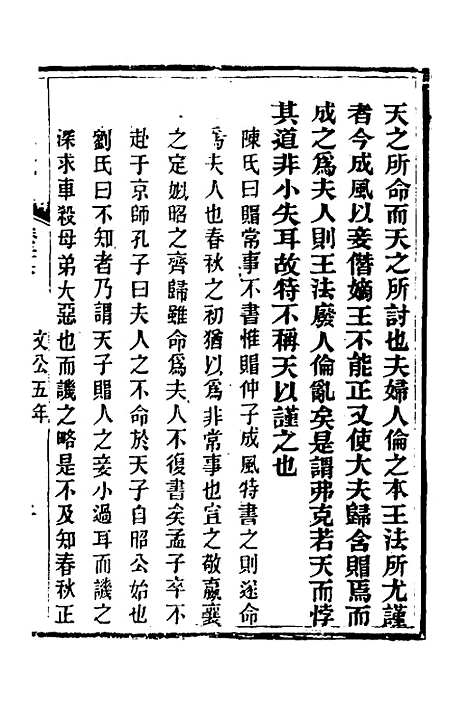 天之所命而天之所討也夫婦人倫之本王法所尤謹
者今成風以妾僭嫡王不能正又使大夫歸含賵焉而
成之爲夫人則王法廢人倫亂矣是謂弗克若天而悖
其道非小失耳故特不稱天以謹之也
陳氏曰賵常事不書惟賵仲子成風特書之則遂命
爲夫人也春秋之初猶以爲非常事也宣之敬嬴襄
之定姒昭之齊歸雖命爲夫人不復書矣孟子卒不
赴于京師孔子曰夫人之不命於天子自昭公始也
劉氏曰不知者乃謂天子賵人之妾小過耳而譏之
深求車殺母弟大惡也而譏之略是不及知春秋正
文公五年